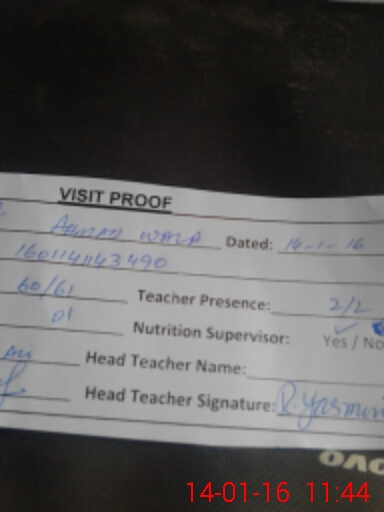 VISIT PROOF
WALA Dated: 14-1-16
1601141143490
60/61 Teacher Presence: 2/2
01 Nutrition Supervisor: Yes / No
Head Teacher Name:
Head Teacher Signature: R. Yasmin
OVO
14-01-16 11:44